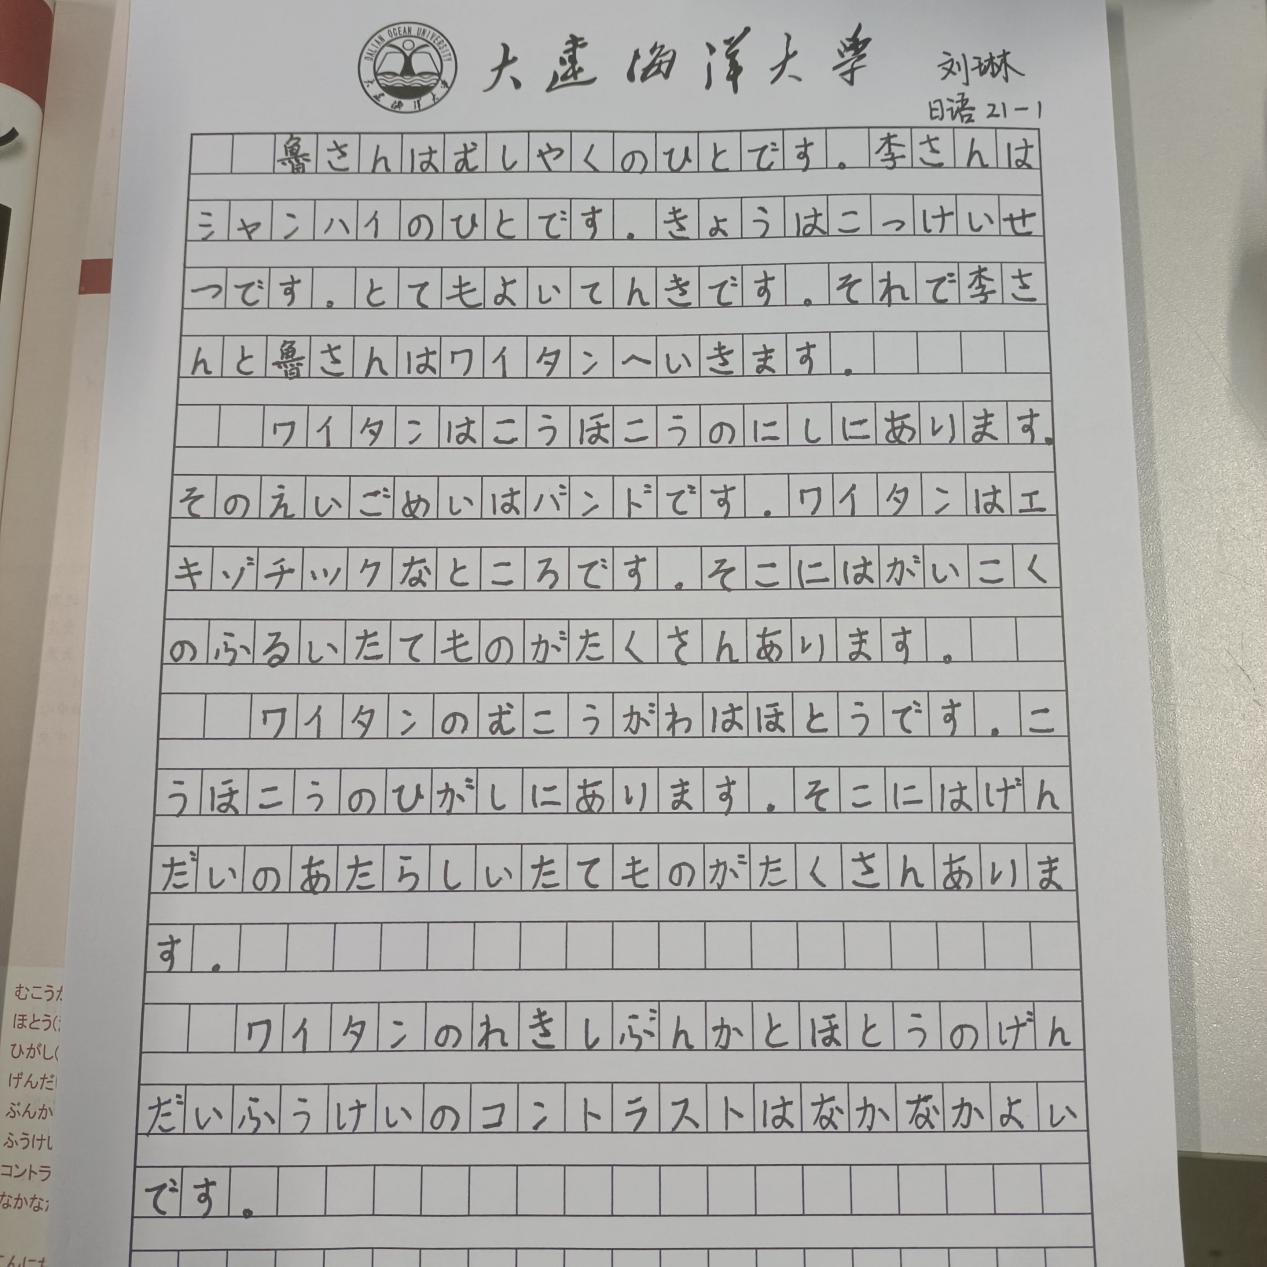 DALIAN OCEAN UNIVERSITY
大连海洋大学
大连海洋大学
刘琳
日语21-1
魯さんはむしやくのひとです.李さんは
シャンハイのひとです.きょうはこっけいせ
つです.とてもよいてんきです.それで李さ
んと魯さんはワイタンへいきます.
ワイタンはこうほこうのにしにあります.
そのえいごめいはバンドです.ワイタンはエ
キゾチックなところです.そこにはがいこく
のふるいたてものがたくさんあります.
ワイタンのむこうがわはほとうです.こ
うほこうのひがしにあります.そこにはげん
だいのあたらしいたてものがたくさんありま
す.
ワイタンのれきしぶんかとほとうのげん
だいふうけいのコントラストはなかなかよい
です.
むこうが
ほとう(
ひがし(
げんだ
ぶんか
ふうけし
コントラ
なかな